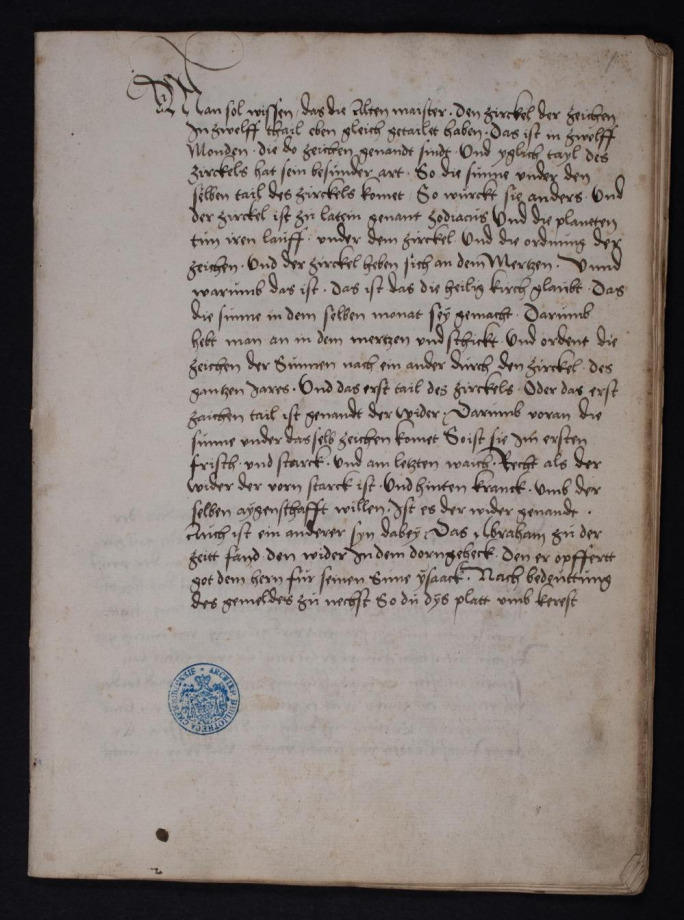 Man sol wissen, das die Alten maister. Den zirckel der zeichen
In zwelff thail eben gleich getailet haben. Das ist in zwölff
Monden. die do zeichen genandt sindt. Und yglich tayl des
zirckels hat sein besunder art. So die sunne under den
selben tail des zirckels komet. So würckt sie anders. Und
der zirckel ist zu latein genant zodiacus Und die planeten
tun iren lauff. under dem zirckel. Und die ordnung der
zeichen. Und der zirckel heben sich an dem Mertzen. Unnd
warumb das ist. Das ist das die heilig kirch glaubt. Das
die sunne in dem selben monat sey gemacht. Darumb
hebt man an in dem mertzen und schickt. Und ordent die
zeichen der Sunnen nach ein ander durch den zirckel. des
gantzen Jares. Und das erst tail des zirckels. Oder das erst
zaichen tail ist genandt der wider. Darumb voran die
sunne under das selb zeichen komet So ist sie Im ersten
frisch. und starck. Und am letzten waich. Recht als der
wider der vorn starck ist. Und hinten kranck. Umb der
selben aygenschafft willen. Ist es der wider genandt.
Auch ist ein anderer syn dabey. Das Abraham zu der
zeitt fand. den wider In dem dorngeheck. Den er opffertt
got dem hern für seinen Sune ysaack. Nach bedeuttung
des gemeldes zu nechst So du dys platt umb kerest
BIBLIOTHECA